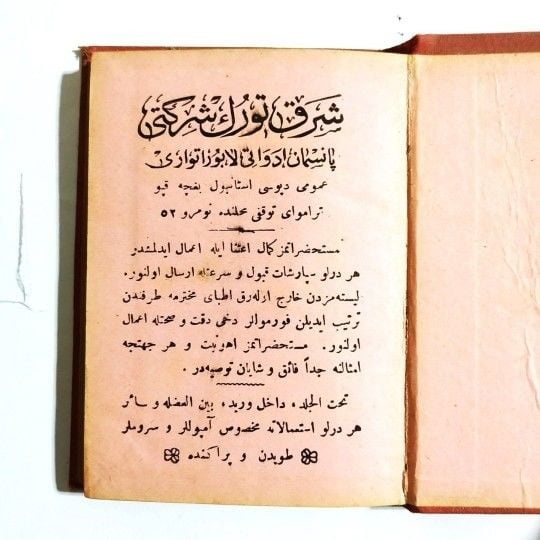 شرق تورك شركتی
پانسمان ادواتی لابوراتواری
عمومی دپوسی استانبول بغچه قپو
تراموای توقفی محلنده نومرو ٥٢
مستحضراتمز كمال اعتنا ایله اعمال ایدلمشدر
هر درلو سپارشات قبول و سرعتله ارسال اولنور.
لیسته مزدن خارج اوله رق اطبای محترمه طرفندن
ترتیب ایدیلن فورموللر دخی دقت و صحتله اعمال
اولنور. مستحضراتمز اهونیت و هر جهتجه
امثالنه جداً فائق و شایان توصیه در.
تحت الجلد، داخل ورید، بین العضله و سائر
هر درلو استعمالاته مخصوص آمپوللر و سروملر
طوپدن و پراكنده